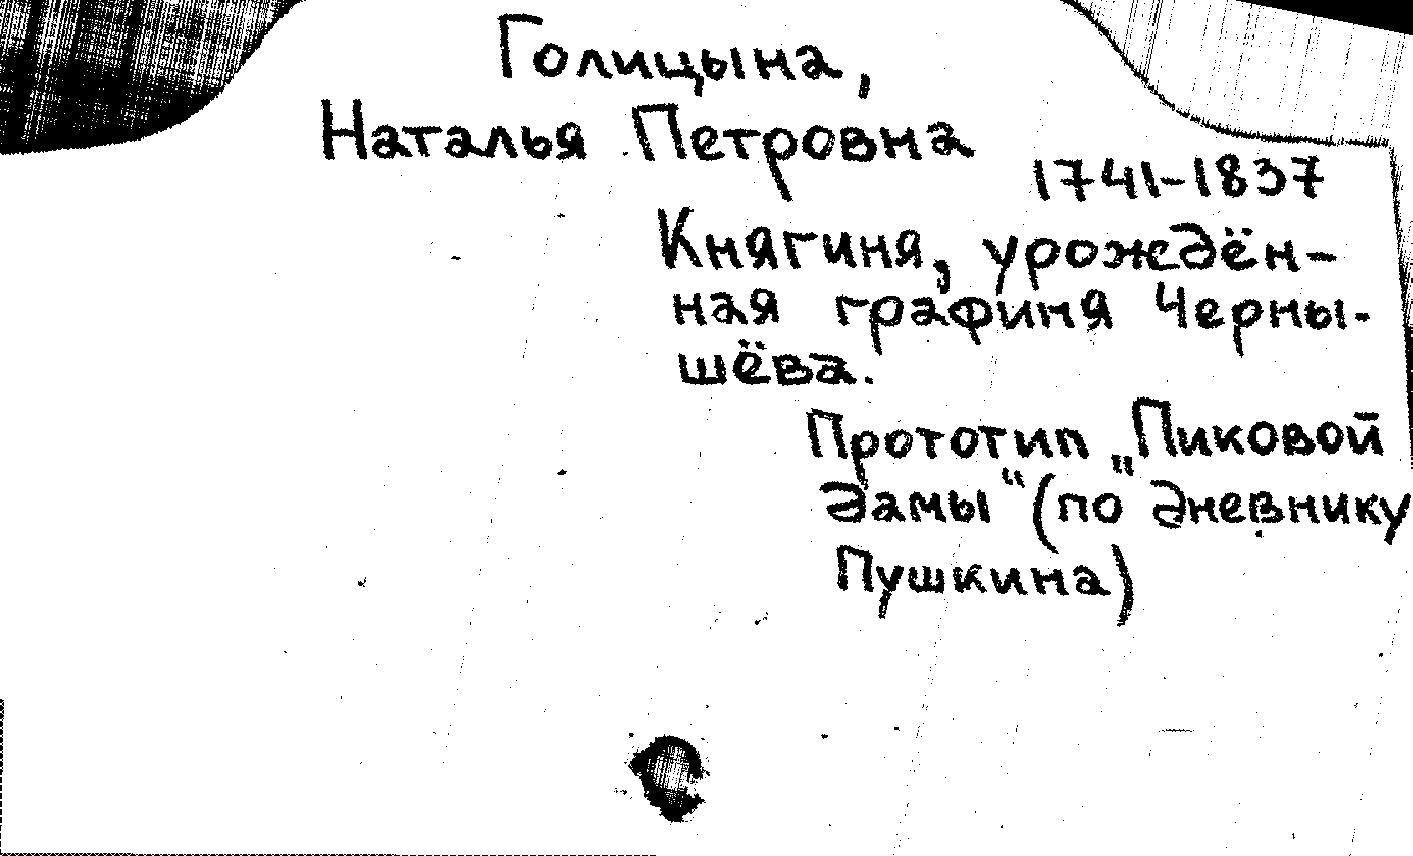 Голицына,
Наталья Петровна
1741-1837
Княгиня, урождён-
ная графиня Черны-
шёва.
Прототип „Пиковой
дамы“ (по дневнику
Пушкина)